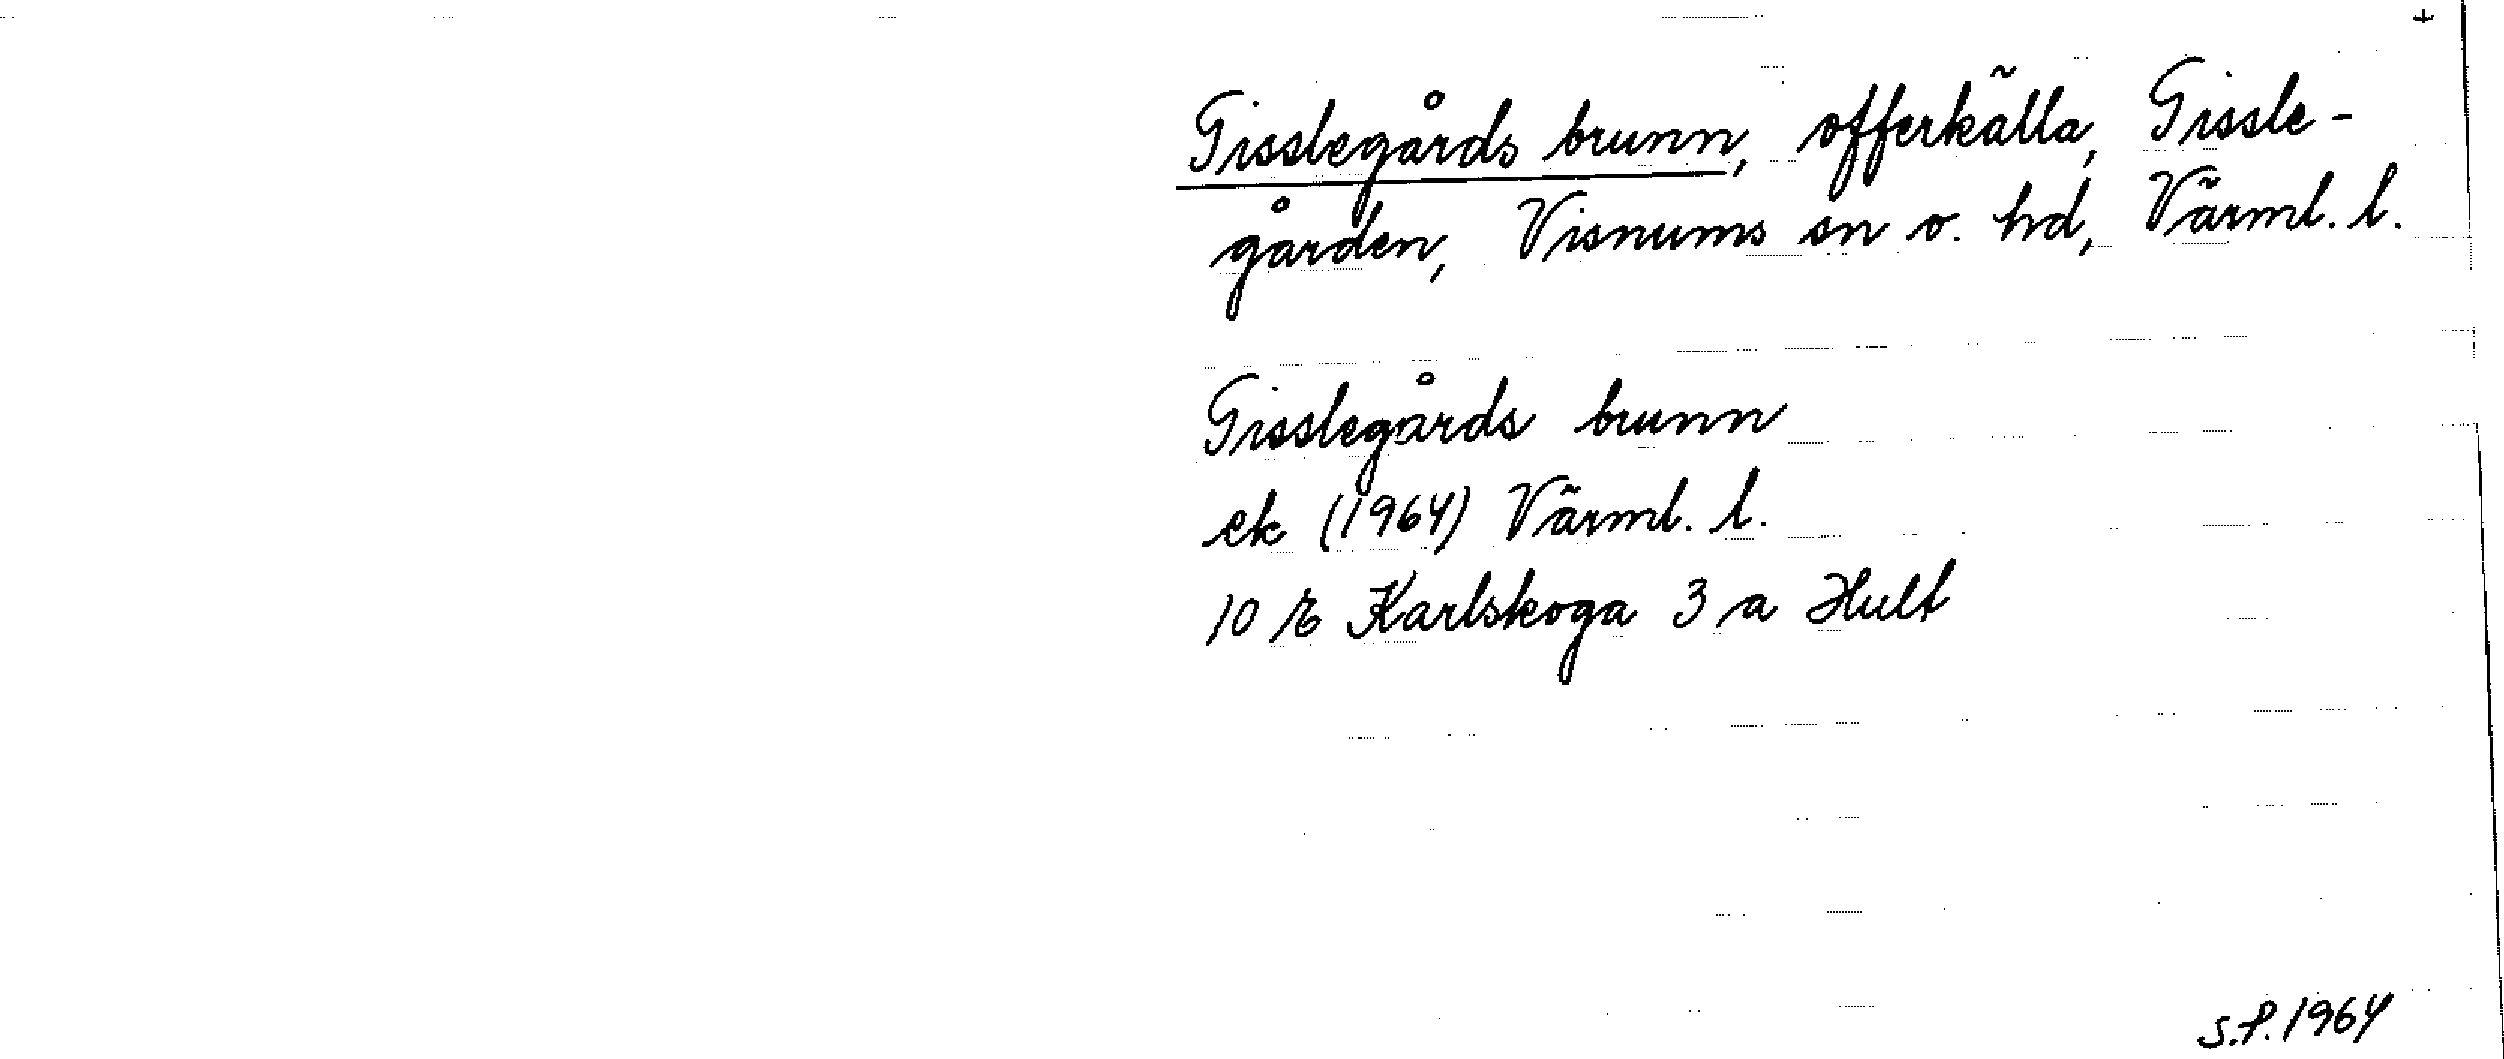 +
Gisslegårds brunn, offerkälla, Gissle-
gården, Visnums sn o. hd, Värml. l.
Gisslegårds brunn
ek (1964) Värml. l.
10 E Karlskoga 3 a Hult
S.P. 1964